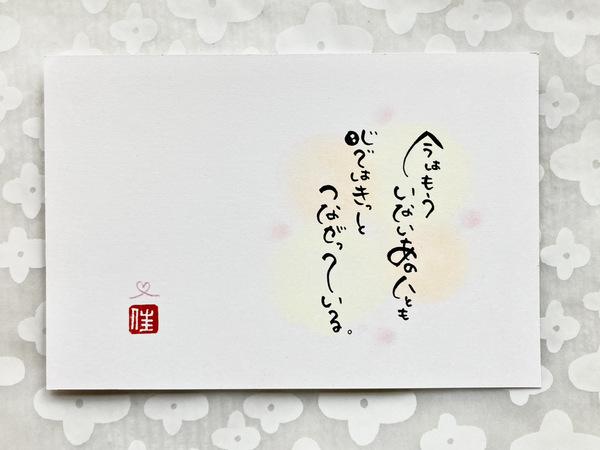 今はもう
いないあの人とも
心ではきっと
つながっている。
佳